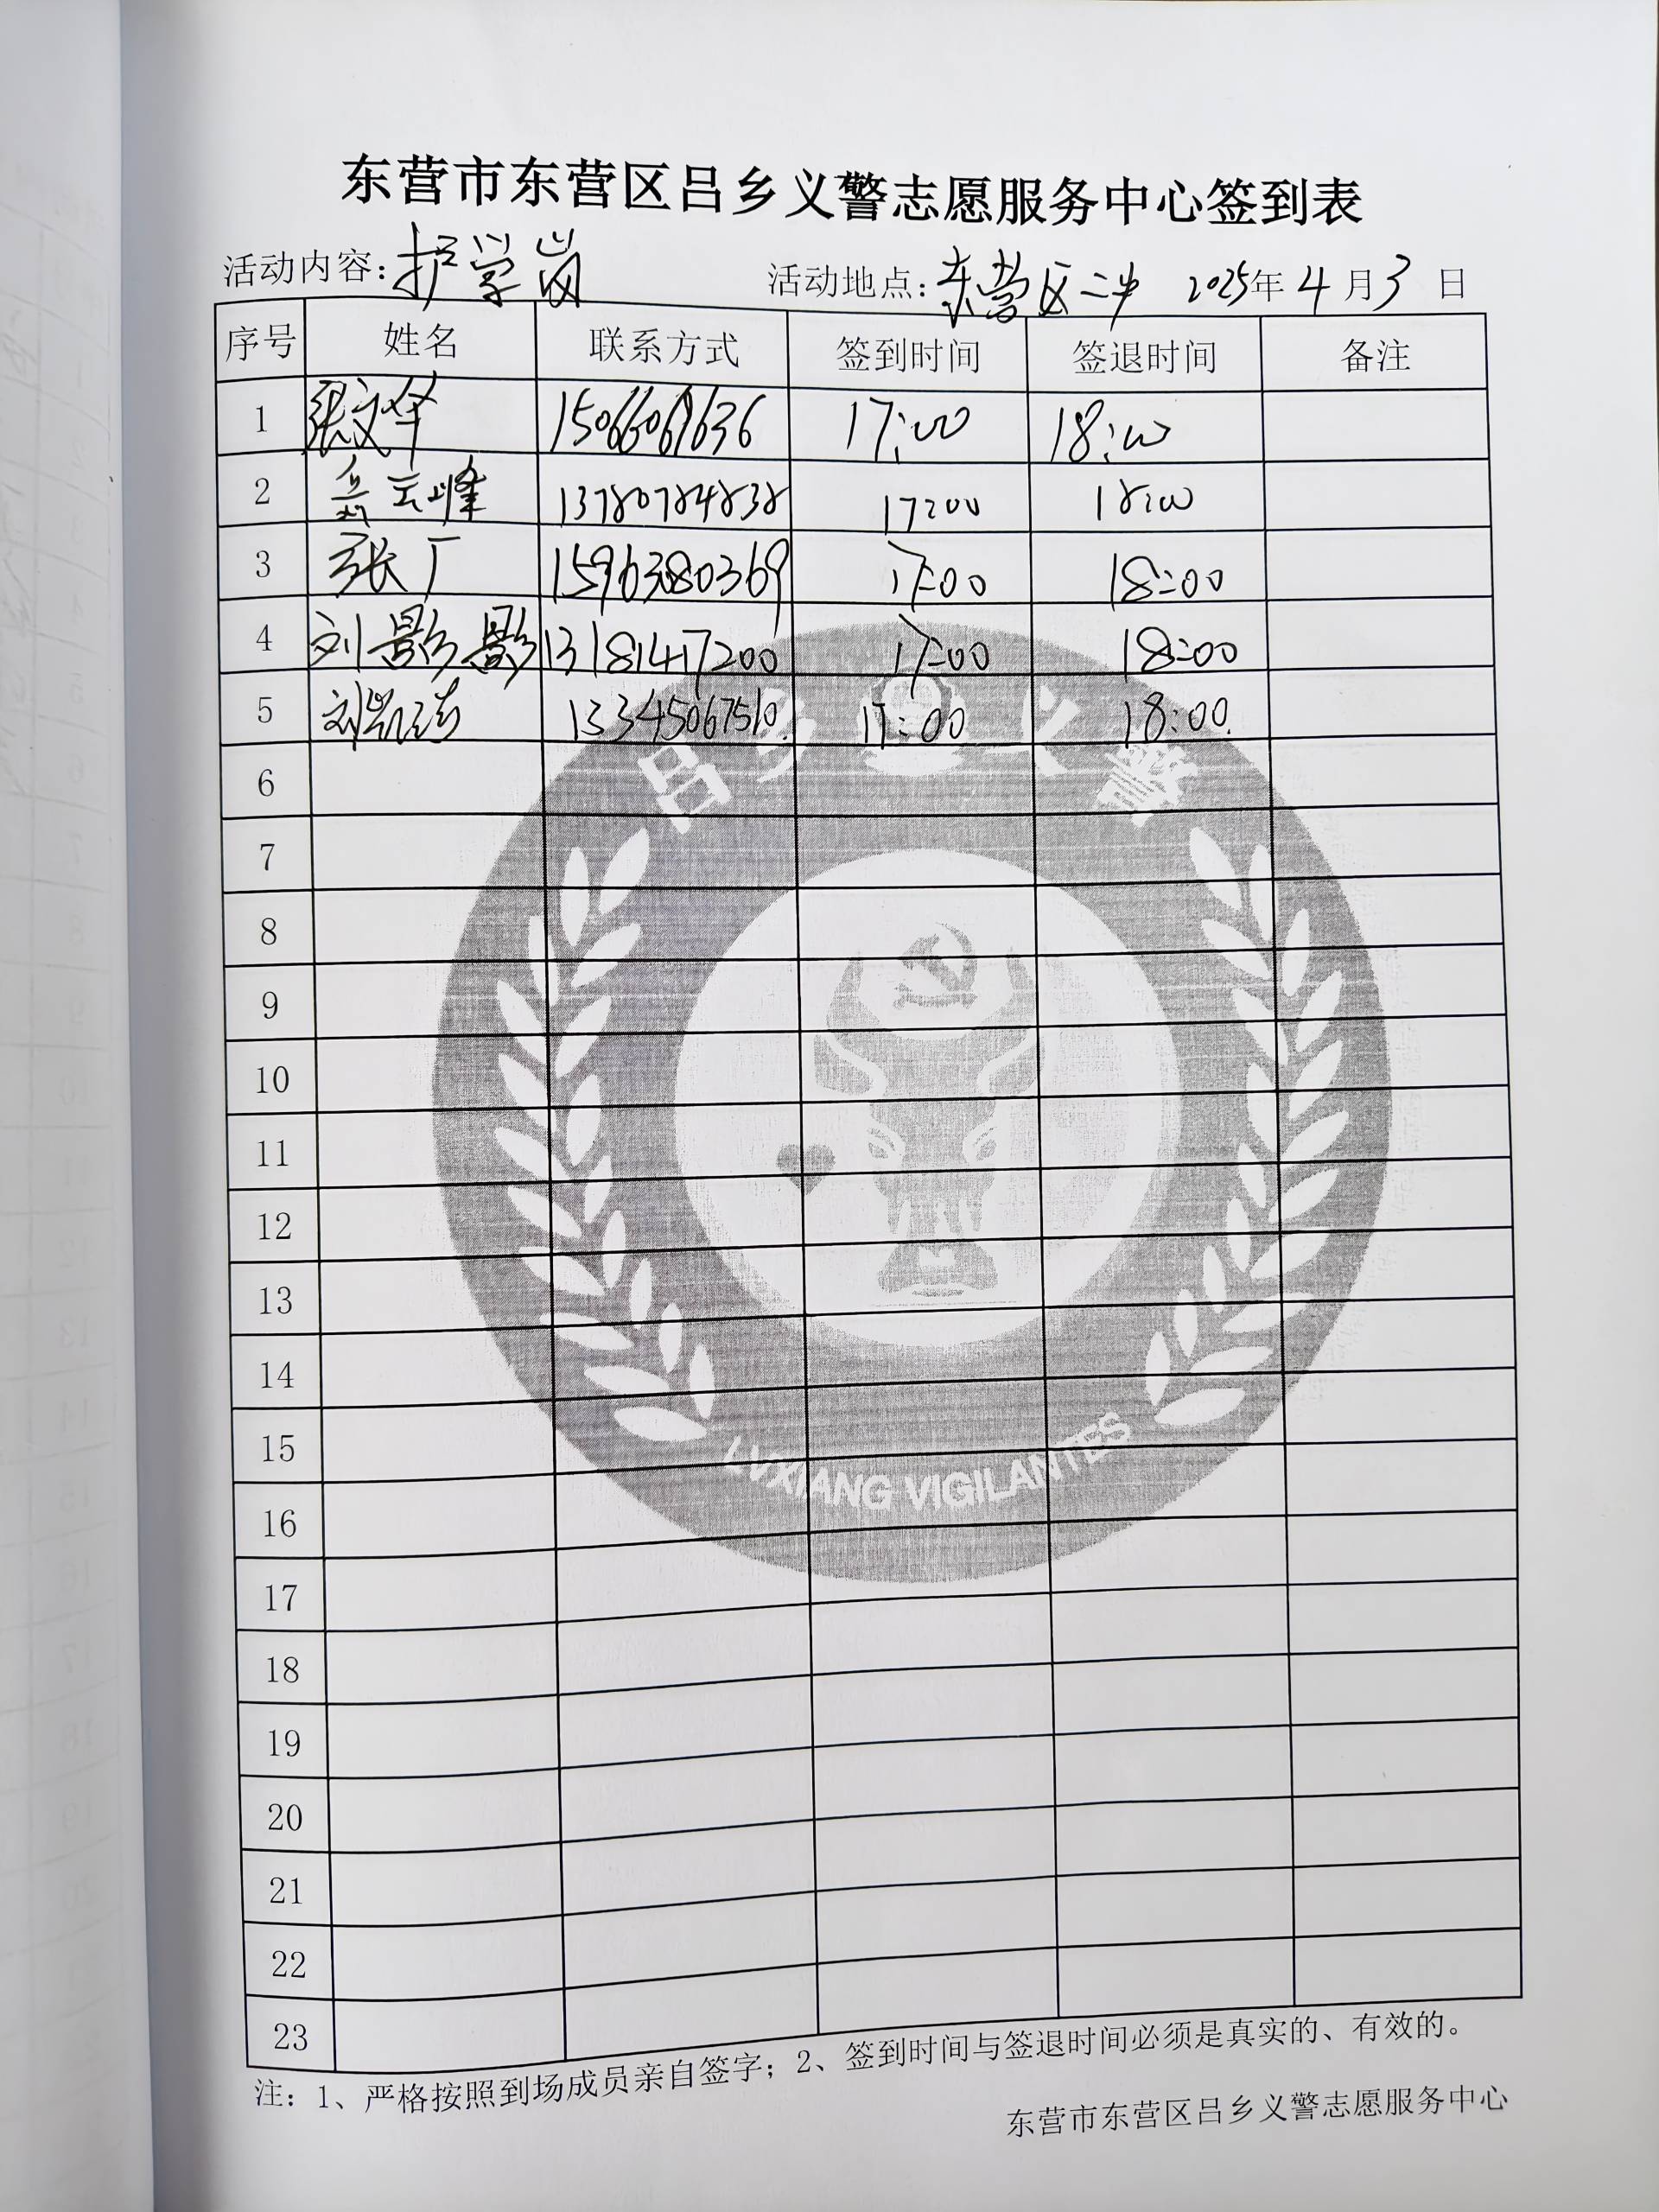 东营市东营区吕乡义警志愿服务中心签到表
活动内容：护学岗 活动地点：东营区二中 2025年4月3日
序号 姓名 联系方式 签到时间 签退时间 备注
1 张文华 15066061636 17:00 18:00
2 岳云峰 13780784838 17:00 18:00
3 张厂 15963880369 17:00 18:00
4 刘影影 13181417200 17:00 18:00
5 刘凯涛 13345067510 17:00 18:00
6
7
8
9
10
11
12
13
14
15
16
17
18
19
20
21
22
23
吕乡义警
LVXIANG VIGILANTES
注：1、严格按照到场成员亲自签字；2、签到时间与签退时间必须是真实的、有效的。
东营市东营区吕乡义警志愿服务中心